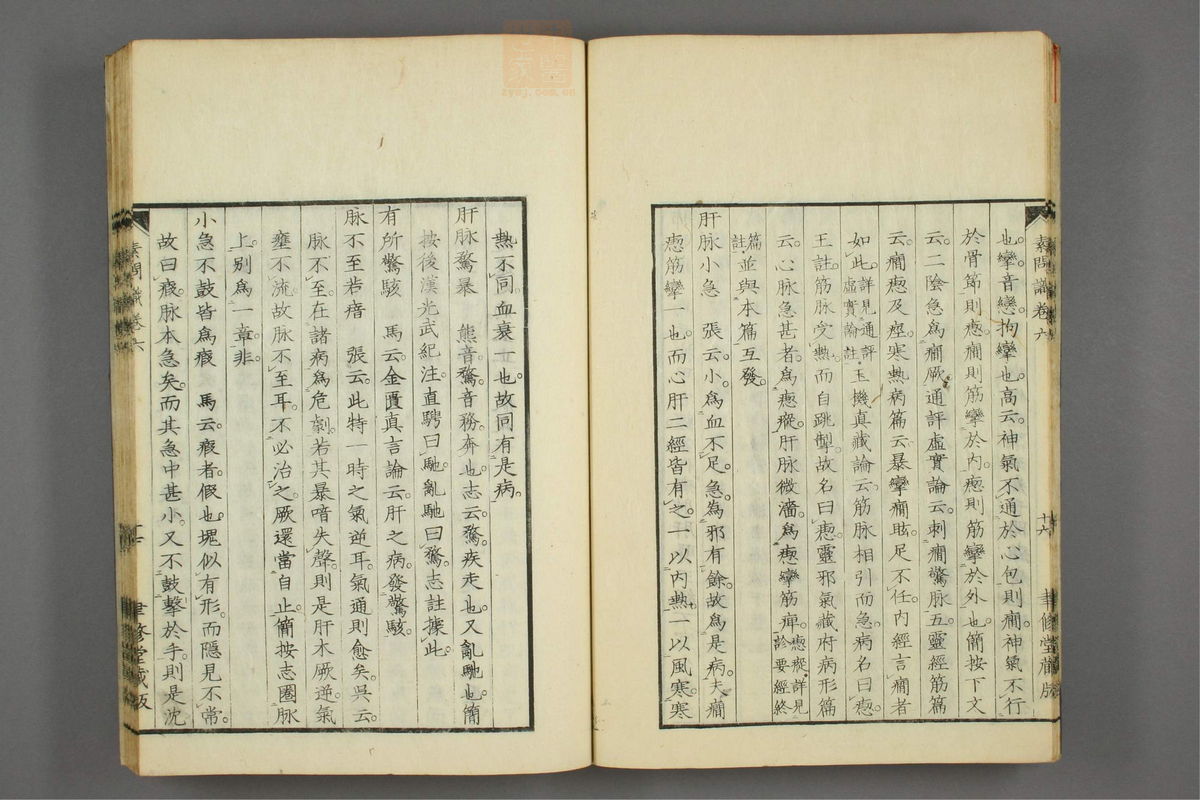 素問識卷六
十六
聿修堂藏版
也。攣音戀。拘攣也。高云。神氣不通於心包則癎。神氣不行
於骨節則瘛。癎則筋攣於内。瘛則筋攣於外也。簡按下文
云。二陰急爲癎厥。通評虛實論云。刺癎驚脉五。靈經筋篇
云。癎瘛及痙。寒熱病篇云。暴攣癎眩。足不任。内經言癎者
如此。詳見通評虛實論註玉機真藏論云。筋脉相引而急。病名曰瘛。
王註。筋脉受熱而自跳掣。故名曰瘛。靈邪氣藏府病形篇
云。心脉急甚者。爲瘛瘲。肝脉微濇。爲瘛攣筋痺。瘛瘲詳見診要經終
篇註並與本篇互發。
肝脉小急　張云。小爲血不足。急爲邪有餘。故爲是病。夫癎
瘛筋攣一也。而心肝二經皆有之。一以内熱。一以風寒。寒
熱不同。血衰一也。故同有是病。
肝脉騖暴　熊音騖。音務。奔也。志云。騖疾走也。又亂馳也。簡
按後漢光武紀注。直騁曰馳。亂馳曰騖。志註據此。
有所驚駭　馬云。金匱真言論云。肝之病。發驚駭。
脉不至若瘖　張云。此特一時之氣逆耳。氣通則愈矣。吳云。
脉不至。在諸病爲危劇。若其暴喑失聲。則是肝木厥逆。氣
壅不流。故脉不至耳。不必治之。厥還當自止。簡按志圈脉
上。別爲一章。非。
小急不鼓皆爲瘕　馬云。瘕者。假也。塊似有形。而隱見不常。
故曰瘕。脉本急矣。而其急中甚小。又不鼓擊於手。則是沈
素問識卷六
聿修堂藏版